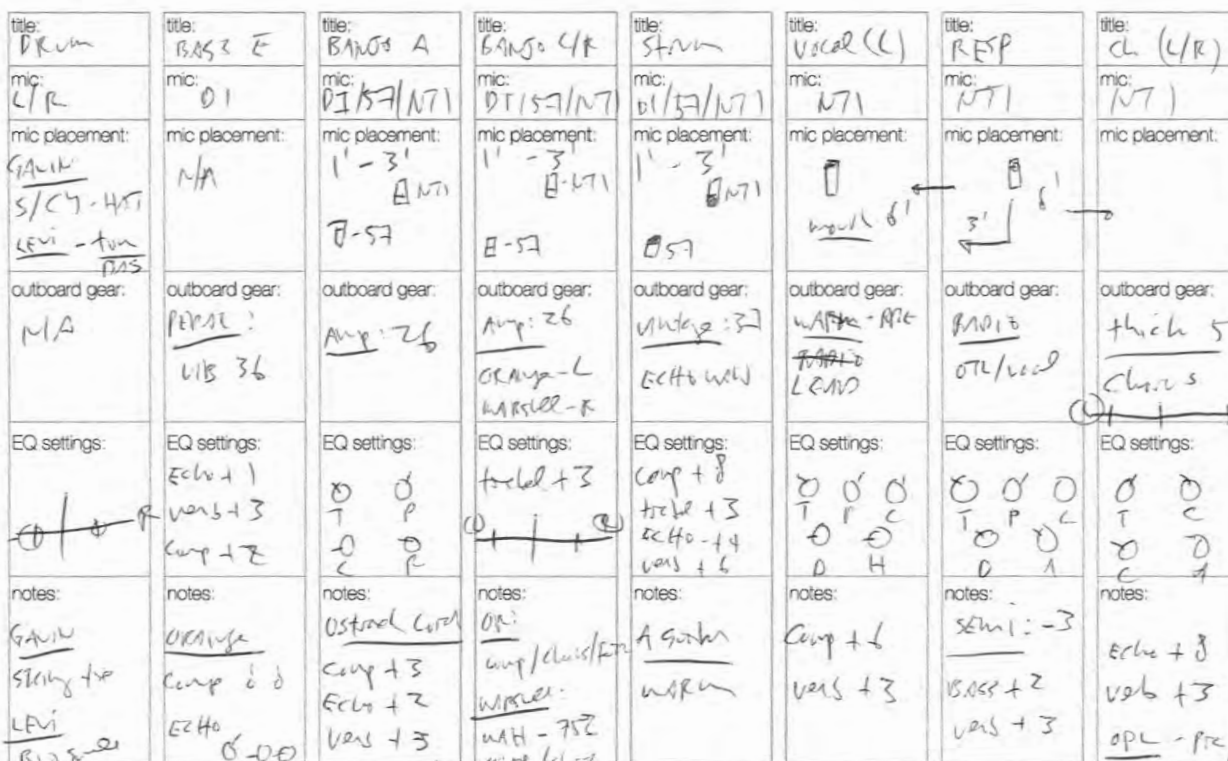 title:
DRUM
mic:
L/R
mic placement:
GAVIN
S/CY - HAT
LEVI - tom
BAS
outboard gear:
N/A
EQ settings:
R
notes:
GAVIN
LEVI
title:
BASS E
mic:
DI
mic placement:
N/A
outboard gear:
PEDAL:
VIB 36
EQ settings:
Echo + 1
verb + 3
Comp + 2
notes:
ORANGE
Comp
ECHO
title:
BANJO A
mic:
DI/57/NT1
mic placement:
1' - 3'
NT1
57
outboard gear:
Amp: 26
EQ settings:
T P
C
notes:
Cord
Comp + 3
Echo + 2
verb + 3
title:
BANJO L/R
mic:
DI/57/NT1
mic placement:
1' - 3'
-NT1
-57
outboard gear:
Amp: 26
ORANGE - L
MARSHALL - R
EQ settings:
trebel + 3
L R
notes:
OR:
MARSHALL:
WAH - 75%
title:
Strum
mic:
DI/57/NT1
mic placement:
1' - 3'
NT1
57
outboard gear:
Vintage: 37
ECHO
EQ settings:
comp + 8
trebel + 3
ECHO - +4
verb + 6
notes:
A Guitar
WARM
title:
VOCAL (L)
mic:
NT1
mic placement:
mouth 6'
outboard gear:
RADIO
LEAD
EQ settings:
T P C
D H
notes:
Comp + 6
verb + 3
title:
RESP
mic:
NT1
mic placement:
6'
3'
outboard gear:
RADIO
/vocal
EQ settings:
T P C
D
notes:
SEMI: -3
BASS + 2
verb + 3
title:
ch (L/R)
mic:
NT1
mic placement:
outboard gear:
thick 5
Chorus
L
EQ settings:
T C
C
notes:
Echo + 8
verb + 3